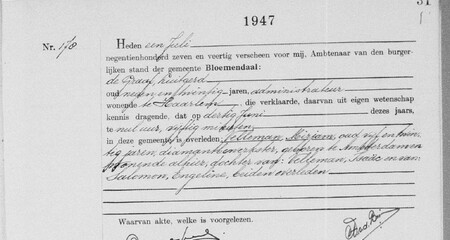 31
1947
Nr. 178
Heden een Juli
negentienhonderd zeven en veertig verscheen voor mij, Ambtenaar van den burger-
lijken stand der gemeente Bloemendaal:
de Graaf, Huitgerd
oud negen en twintig jaren, administrateur
wonende te Haarlem, die verklaarde, daarvan uit eigen wetenschap
kennis dragende, dat op dertig Juni dezes jaars,
te nul uur, vijftig minuten
in deze gemeente is overleden: Velleman, Mirjam, oud vijf en twin-
tig jaren, diamantbewerkster, geboren te Amsterdam en
wonende alhier, dochter van: Velleman, Isaac en van
Salomon, Engeline, beiden overleden.
Waarvan akte, welke is voorgelezen.